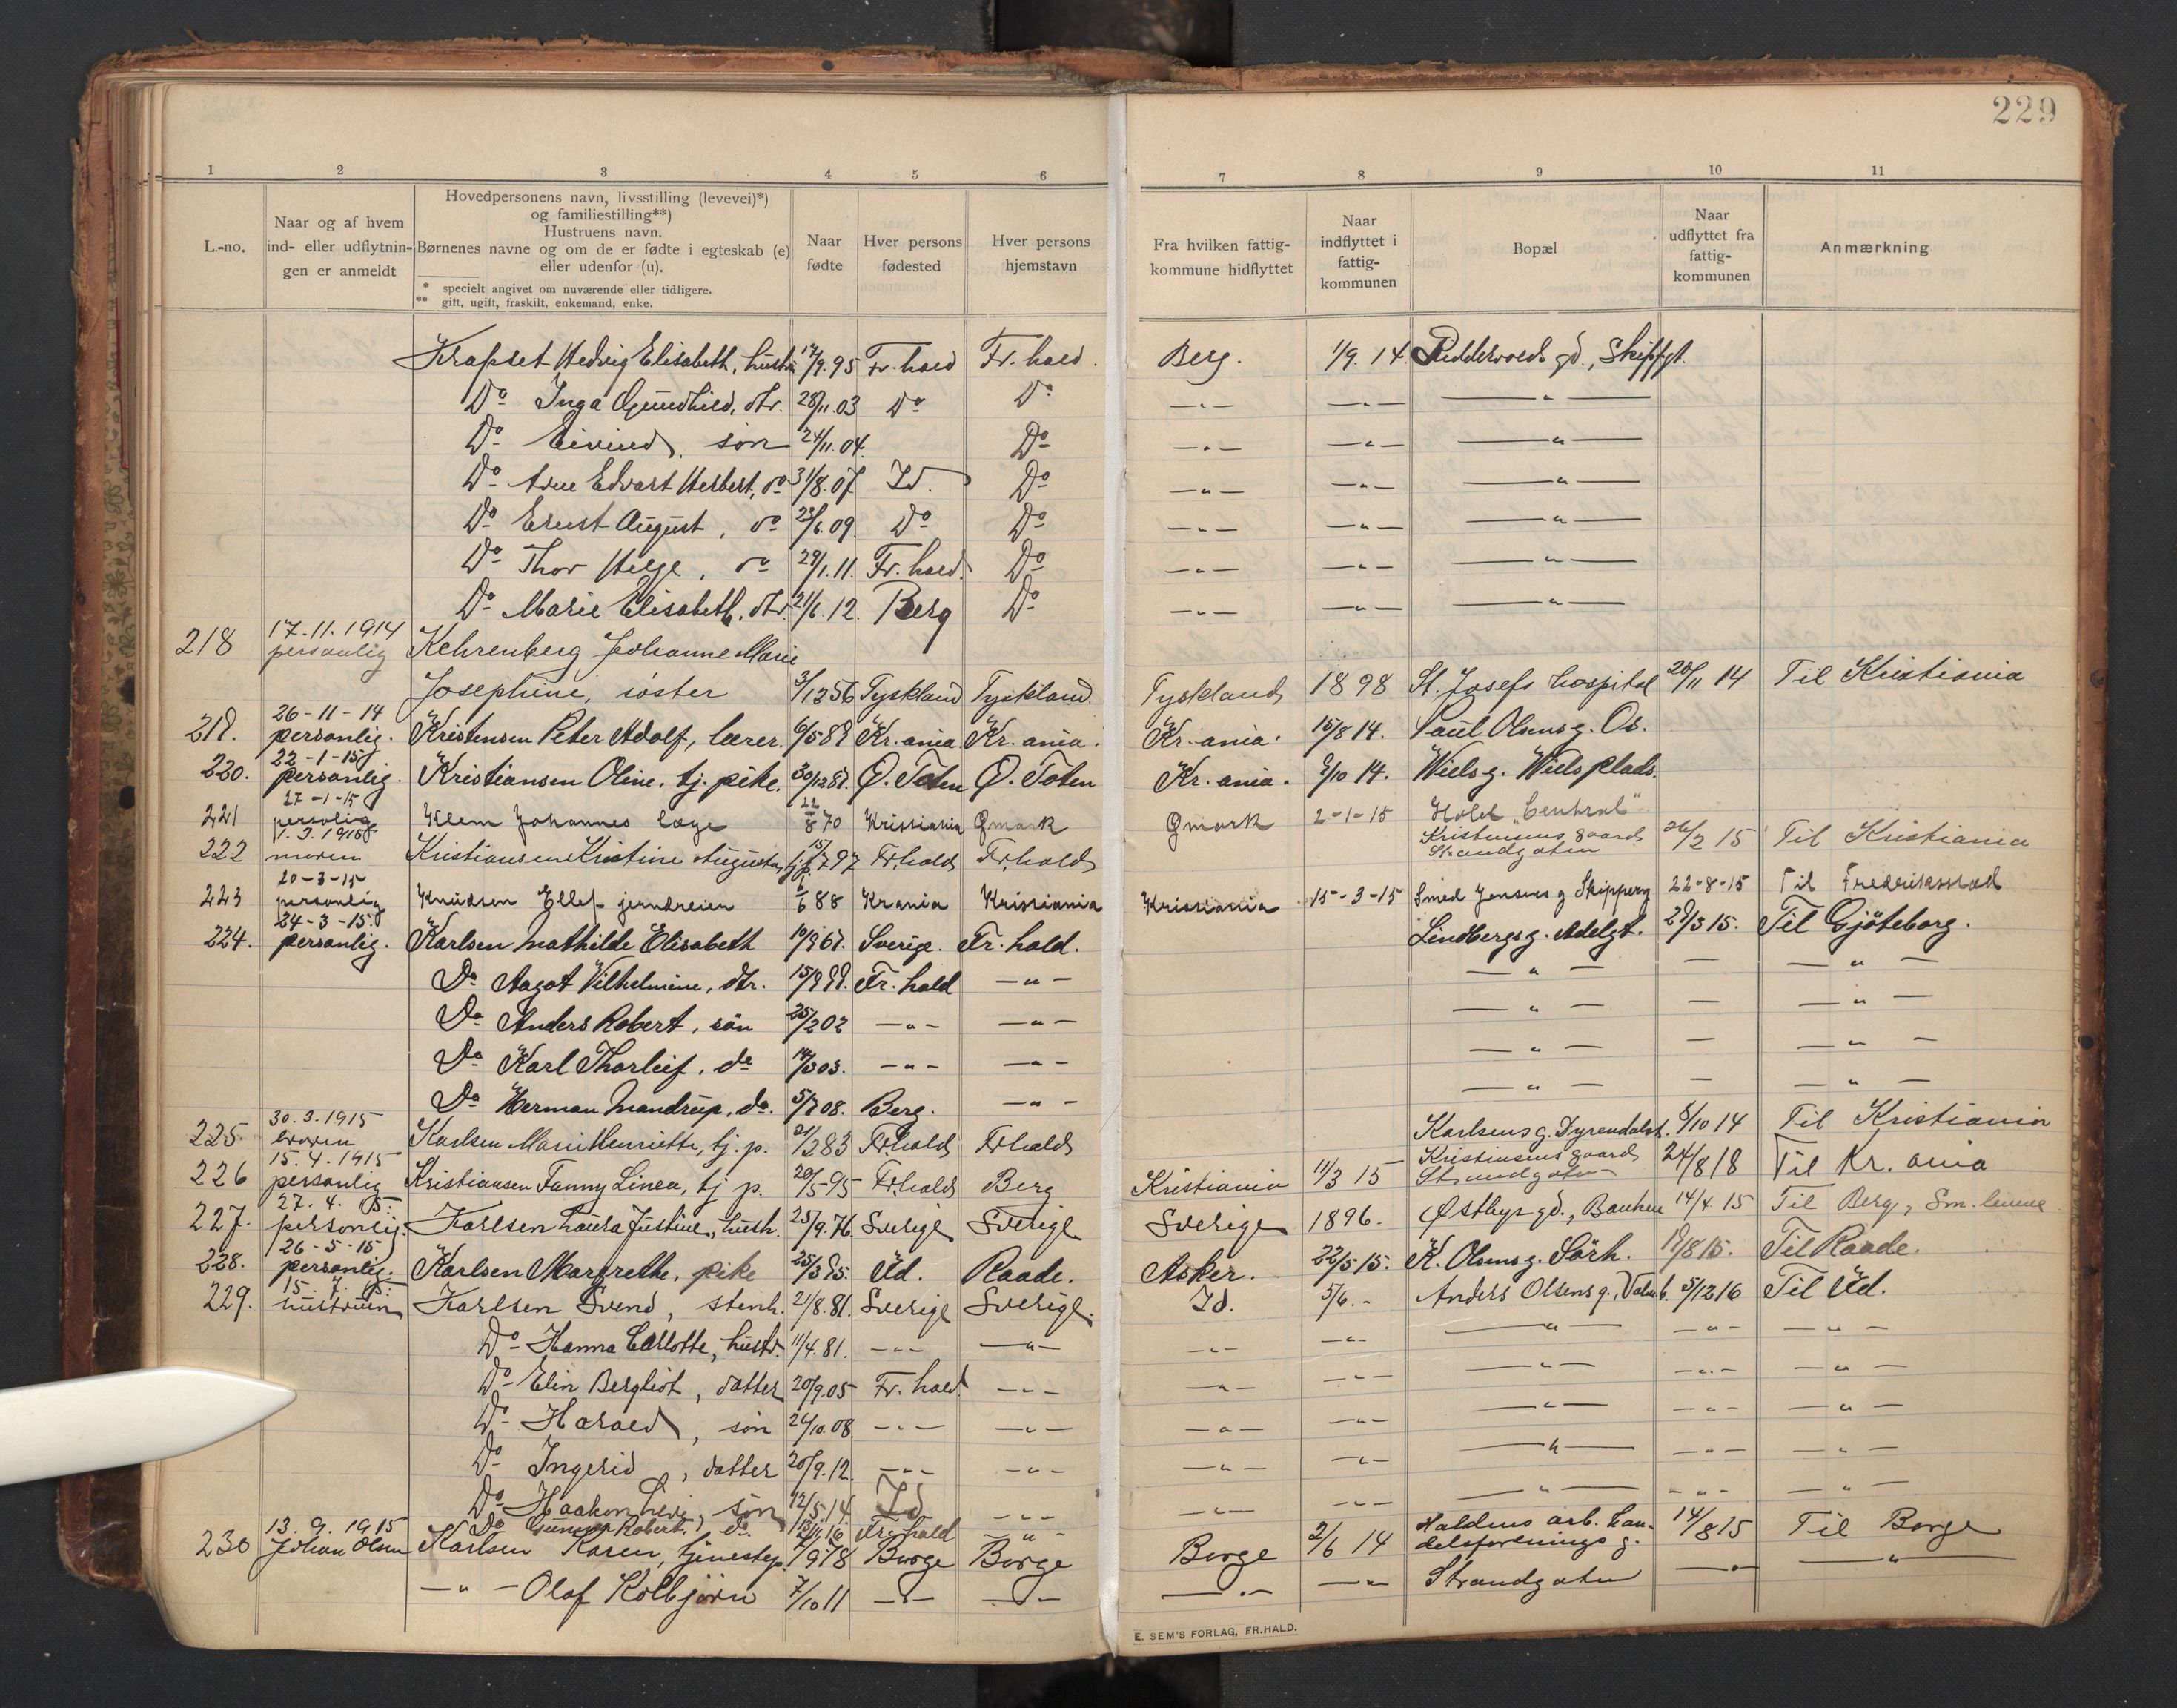 229
1 2 3 4 5 6 7 8 9 10 11
L.-no.
Naar og af hvem
ind- eller udflytnin-
gen er anmeldt
Hovedpersonens navn, livsstilling (levevei)*)
og familiestilling**)
Hustruens navn.
Børnenes navne og om de er fødte i egteskab (e)
eller udenfor (u).
* specielt angivet om nuværende eller tidligere.
** gift, ugift, fraskilt, enkemand, enke.
Naar
fødte
Hver persons
fødested
Hver persons
hjemstavn
Fra hvilken fattig-
kommune hidflyttet
Naar
indflyttet i
fattig-
kommunen
Bopæl
Naar
udflyttet fra
fattig-
kommunen
Anmærkning
Krapset Hedvig Elisabeth, hustr. 17/9.95 Fr. hald Fr. hald. Berg. 1/9.14. Ruddervolds gd., Skippgt.
Do Inga Gundhild, dtr. 28/11.03 Do Do —"— —"— —"—
Do Eivind, søn 24/11.04. Do —"— —"— —"—
Do Arne Edvart Herbert, do 31/8.07 Id. Do —"— —"— —"—
Do Ernst August, do 23/6.09. Do Do —"— —"— —"—
Do Thor Helge, do 29/1.11. Fr. hald. Do —"— —"— —"—
Do Marie Elisabeth, dtr. 21/6.12. Berg Do —"— —"— —"—
17.11.1914
218 personlig Kehrenberg Johanne Marie
Josephine, søster 3/12 56 Tyskland Tyskland. Tyskland 1898 St. Josefs hospital 20/11 14 Til Kristiania
26-11-14
219. personlig. Kristensen Peter Adolf, lærer. 6/5 89 Kr.ania Kr.ania. Kr.ania. 15/8 14. Paul Olsens g. Os.
22-1-15
220. personlig. Kristiansen Oline, tj. pike. 30/12 87. Ø. Toten Ø. Toten Kr.ania. 9/10 14. Wiels g. Wielsplads.
27-1-15
221 persolig Klem Johannes læge 22/8 70 Kristiania Qmark Qmark 2-1-15 Hotel "Central"
1.3.1915
222 moren Kristiansen Kristine Augusta, tj.p. 15/7 97 Frhald Frhald Kristiansens gaard, Strandgaten 26/2 15 Til Kristiania
20-3-15
223 personlig Knudsen Ellef jerndreier 1/6 88 Krania Kristiania Kristiania 15-3-15 Smed Jensens g Skipperg 22-8-15 Til Fredriksstad
24-3-15.
224. personlig. Karlsen Mathilde Elisabeth 10/9 67. Sverige. Fr. hald. Lindbergs g. Adelgt. 29/3 15. Til Gjöteborg.
Do Aagot Vilhelmine, dtr. 15/9 99. Fr. hald —"— —"— — —"—
Do Anders Robert, sön 25/2 02 —"— —"— —"— — —"—
Do Karl Thorleif, do 14/3 03. —"— —"— —"— — —"—
Do Herman Mandrup, do. 5/7 08. Berg. —"— —"— — —"—
30.3.1915
225 broren Karlsen Marie Henriette, tj. p. 21/2 83 Frhald Frhald Karlsens g. Dyrendalst. 8/10 14 Til Kristiania
15.4.1915
226 personlig Kristiansen Fanny Linea, tj p. 20/5-95 Frhald Berg Kristiania 11/3 15 Kristiansens gaard Strandgaten 24/8 18 Til Kr. ania
27.4.15.
227. personlig. Karlsen Laura Justine, hush. 25/9.76 Sverige Sverige Sverige 1896. Østbys gd., Banken 14/4 15 Til Berg, Sm.linne
26-5-15
228. personlig. Karlsen Margrethe, pike 25/3 95. Id. Raade. Asker. 22/5 15. K. Olsens g. Sörh. 19/8 15. Til Raade.
15.7.15.
229. hustruen Karlsen Svend, stenh. 21/8.81. Sverige Sverige. Id. 5/6.- Anders Olsens g., Valub. 5/12 16 Til Id.
Do Hanna Carlotte, hustr. 11/4.81. —"— —"— —"— —"— —"— —"— —"—
Do Elin Bergliot, datter 20/9.05 Fr. hald —"— —"— —"— —"— —"— —"—
Do Harald, søn 24/10.08 —"— —"— —"— —"— —"— —"— —"—
Do Ingerid, datter 20/9.12. —"— —"— —"— —"— —"— —"— —"—
Do Haakon Levi, søn 12/5.14 Id —"— —"— —"— —"— —"— —"—
Do Gunnar Robert, do 13/11.16 Fr. hald —"—
13.9.1915
230 Johan Olsen Karlsen Karen, tjenestep. 7/9 78 Borge Borge Borge 2/6 14 Haldens arb. han- 14/8 15 Til Borge
delsforenings g.
—"— Olaf Kolbjørn 7/10 11 —"— —"— —"— —"— Strandgaten —"— —"—
E. SEM'S FORLAG, FR.HALD.